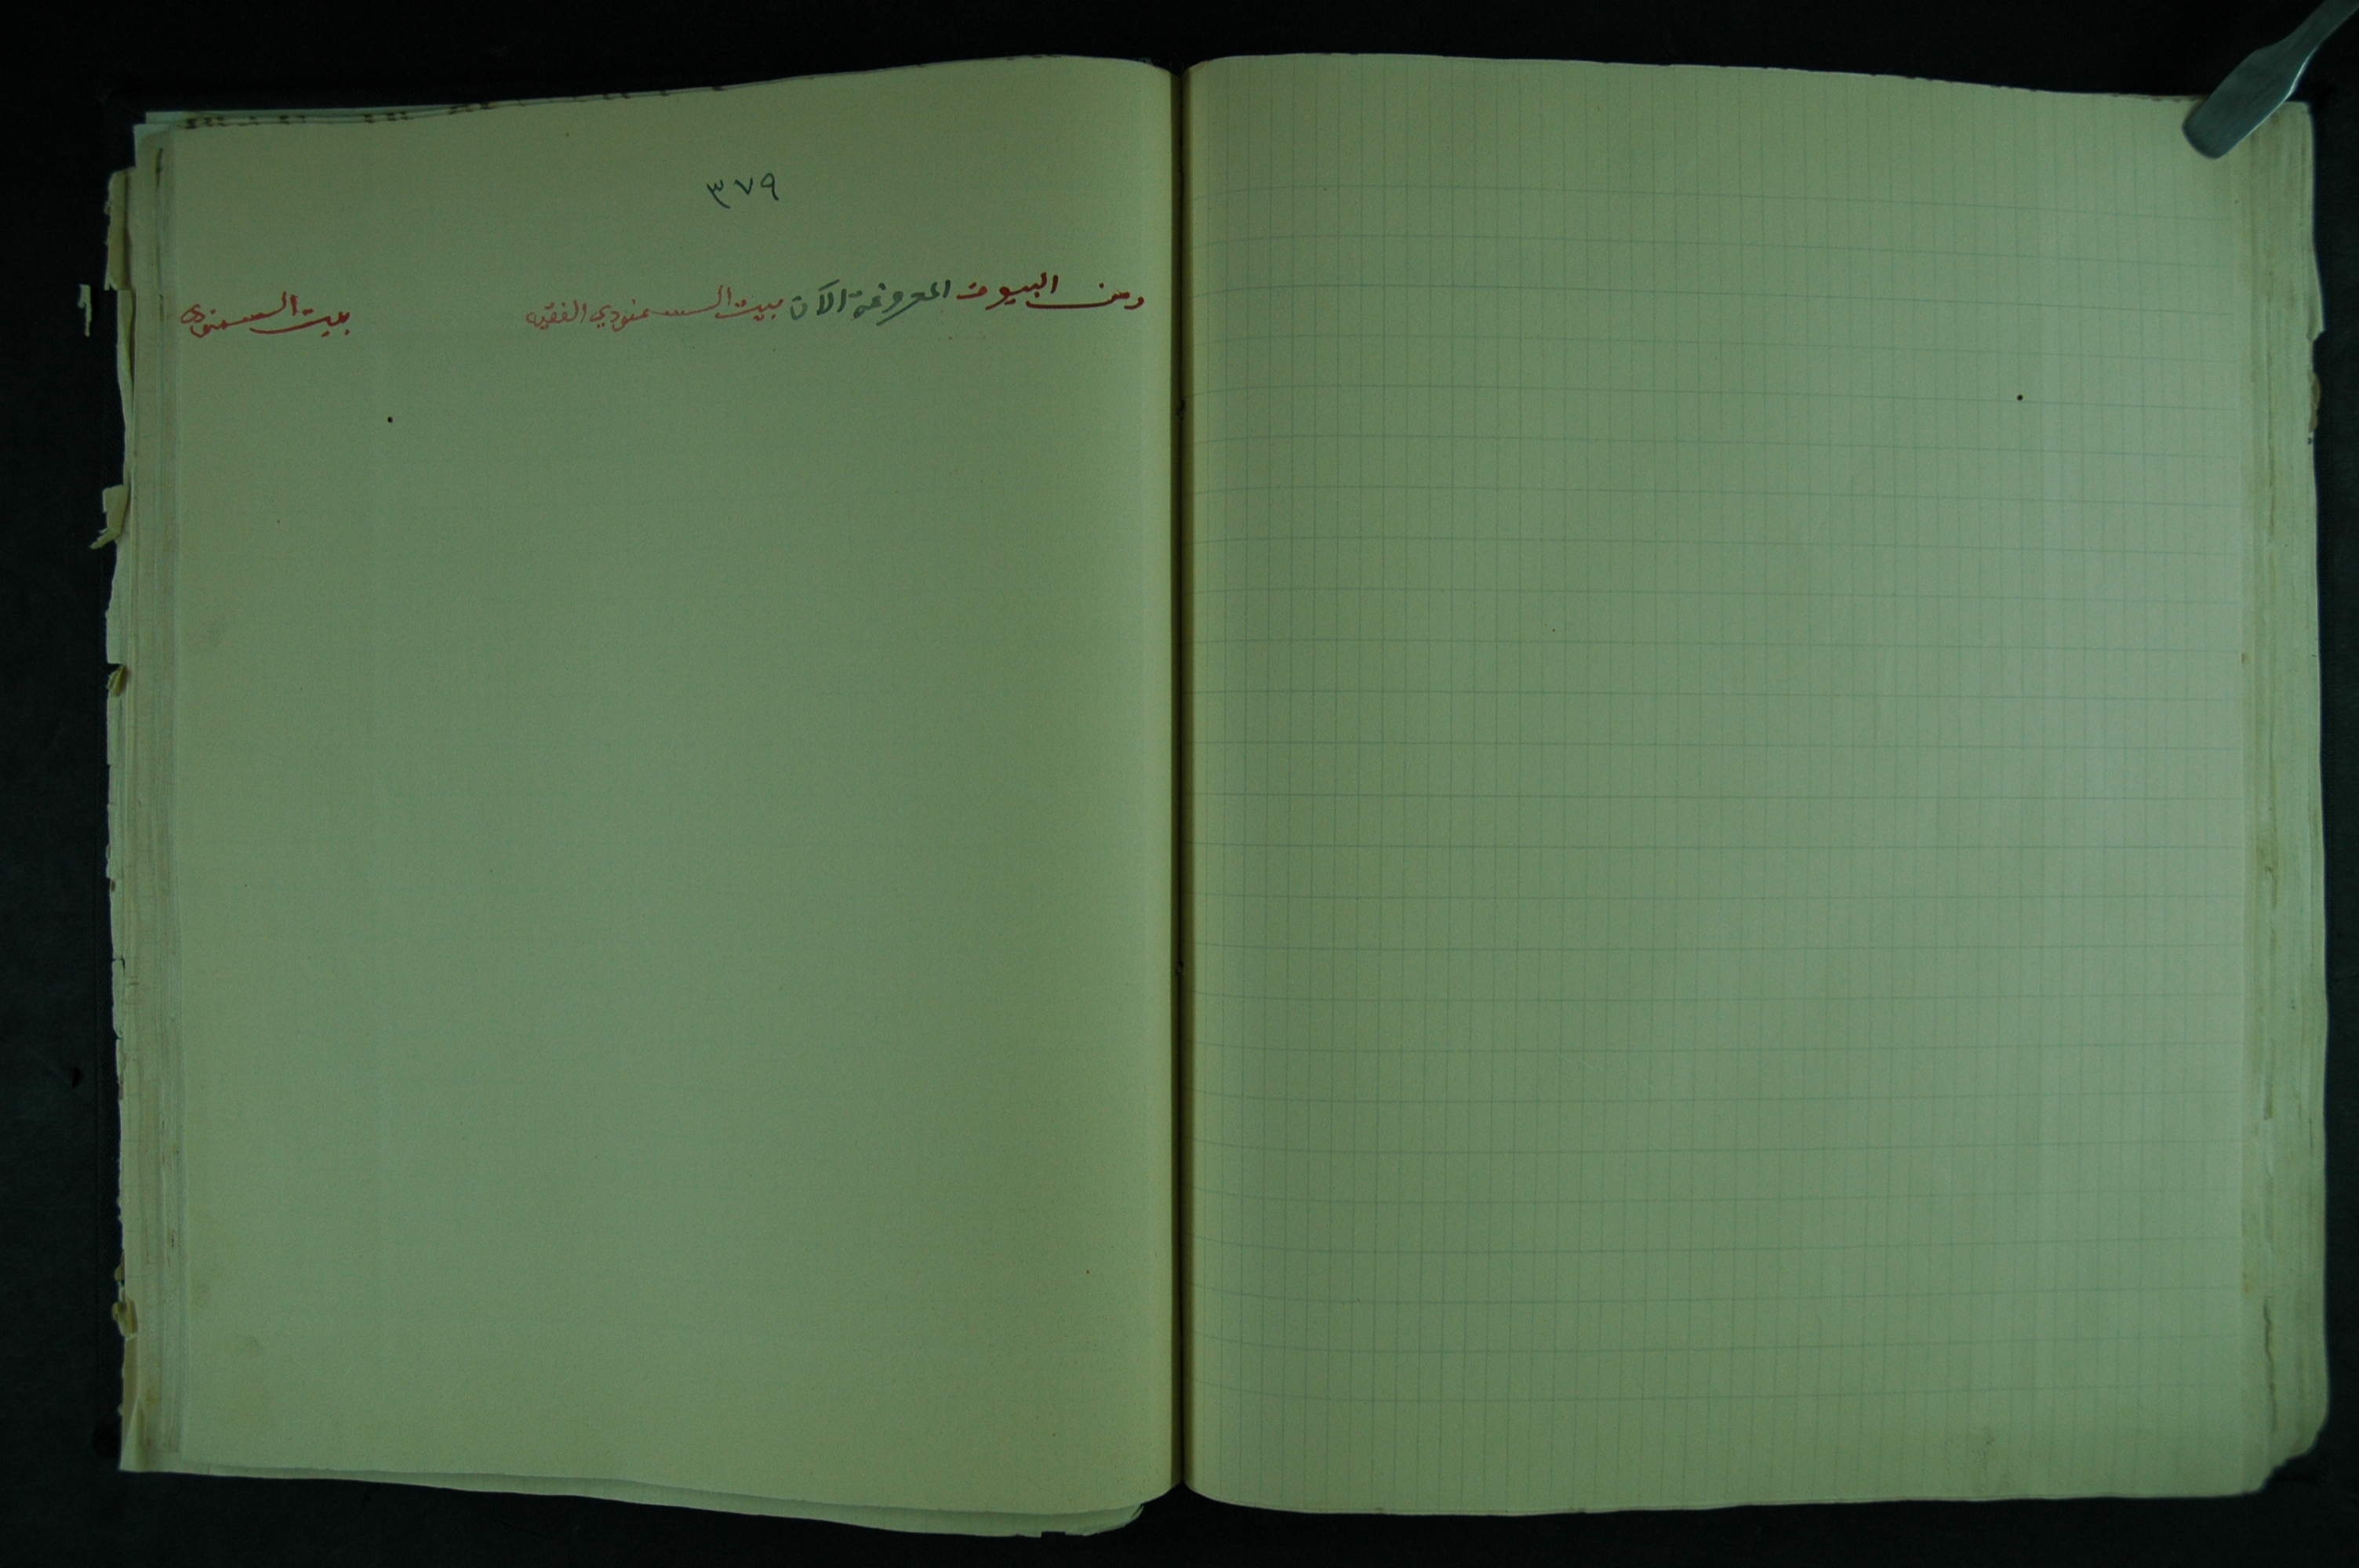 ٣٧٩
ومن البيوت المعروفة الآن بيت السمنودي الفقيه
بيت السمنودى